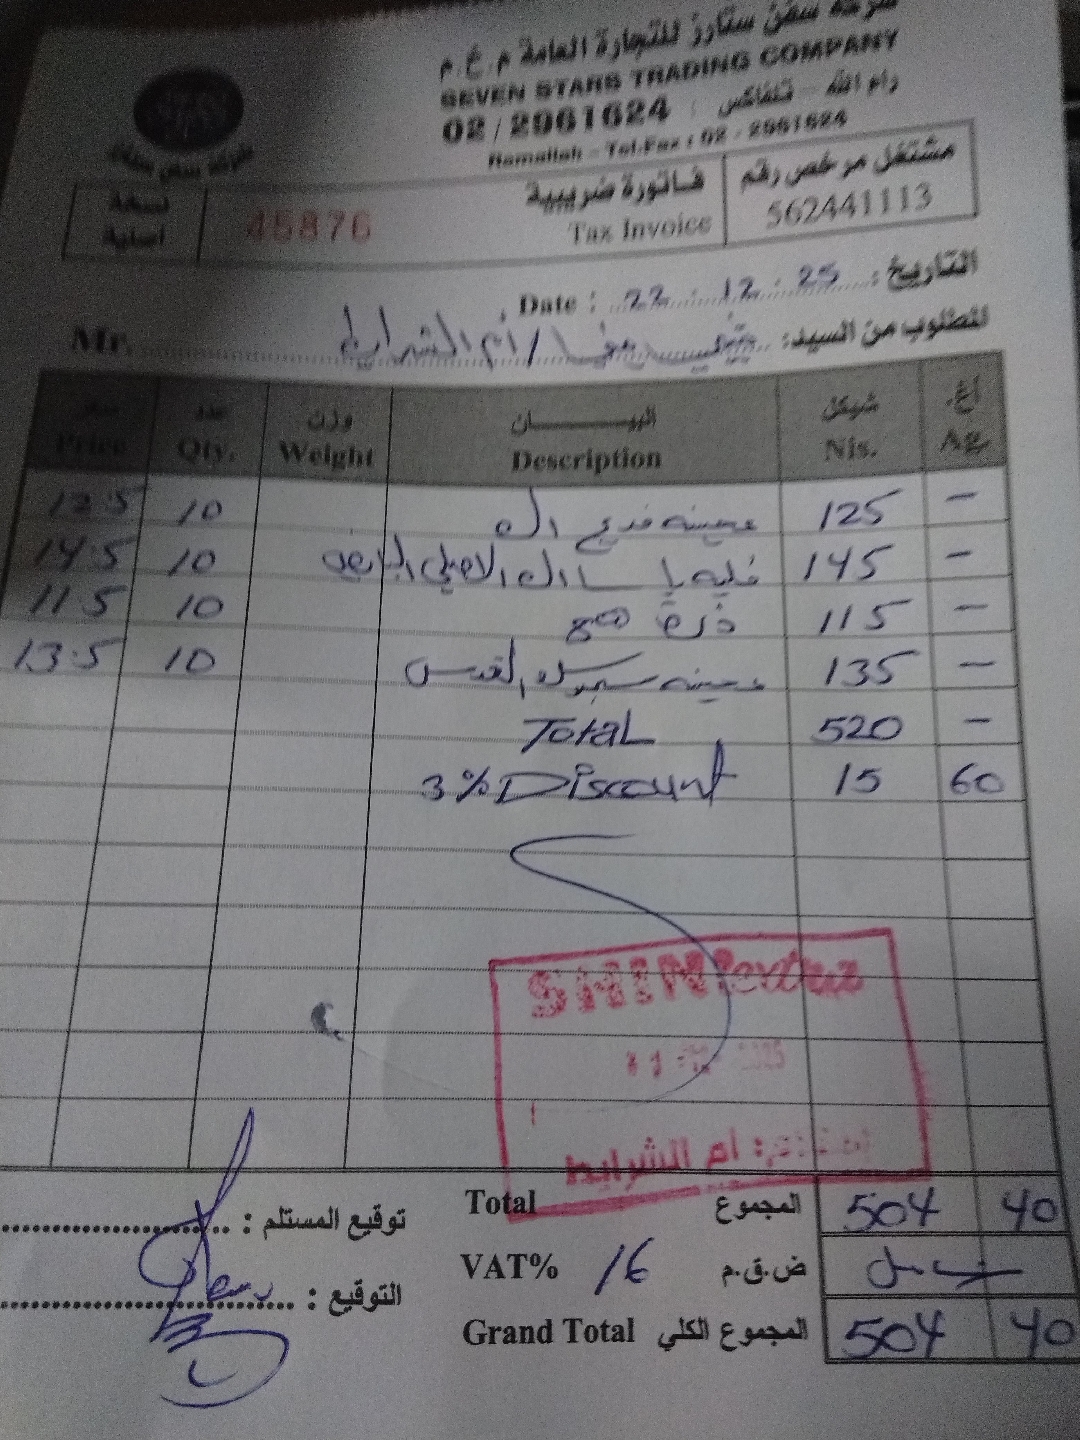 شركة سفن ستارز للتجارة العامة م.خ.م
SEVEN STARS TRADING COMPANY
رام الله - تلفاكس : 02 / 2961624
Ramallah - Tel.Fax : 02 - 2961624
شركة سفن ستارز
مشتغل مرخص رقم 562441113
فاتورة ضريبية
Tax Invoice
45876
نسخة
أصلية
التاريخ : Date : 22 . 12 . 25
المطلوب من السيد: / أم الشرايط Mr.
أغ. شيكل البيـــــــــان وزن عدد سعر
Ag. Nis. Description Weight Qty. Price
- 125 10 12.5
- 145 10 14.5
- 115 ذرة 10 11.5
- 135 القدس 10 13.5
- 520 Total
60 15 3% Discount
SHINI extra
2025
أم الشرايط
Total المجموع 504 40
توقيع المستلم :
VAT% 16 ض.ق.م
التوقيع :
Grand Total المجموع الكلي 504 40